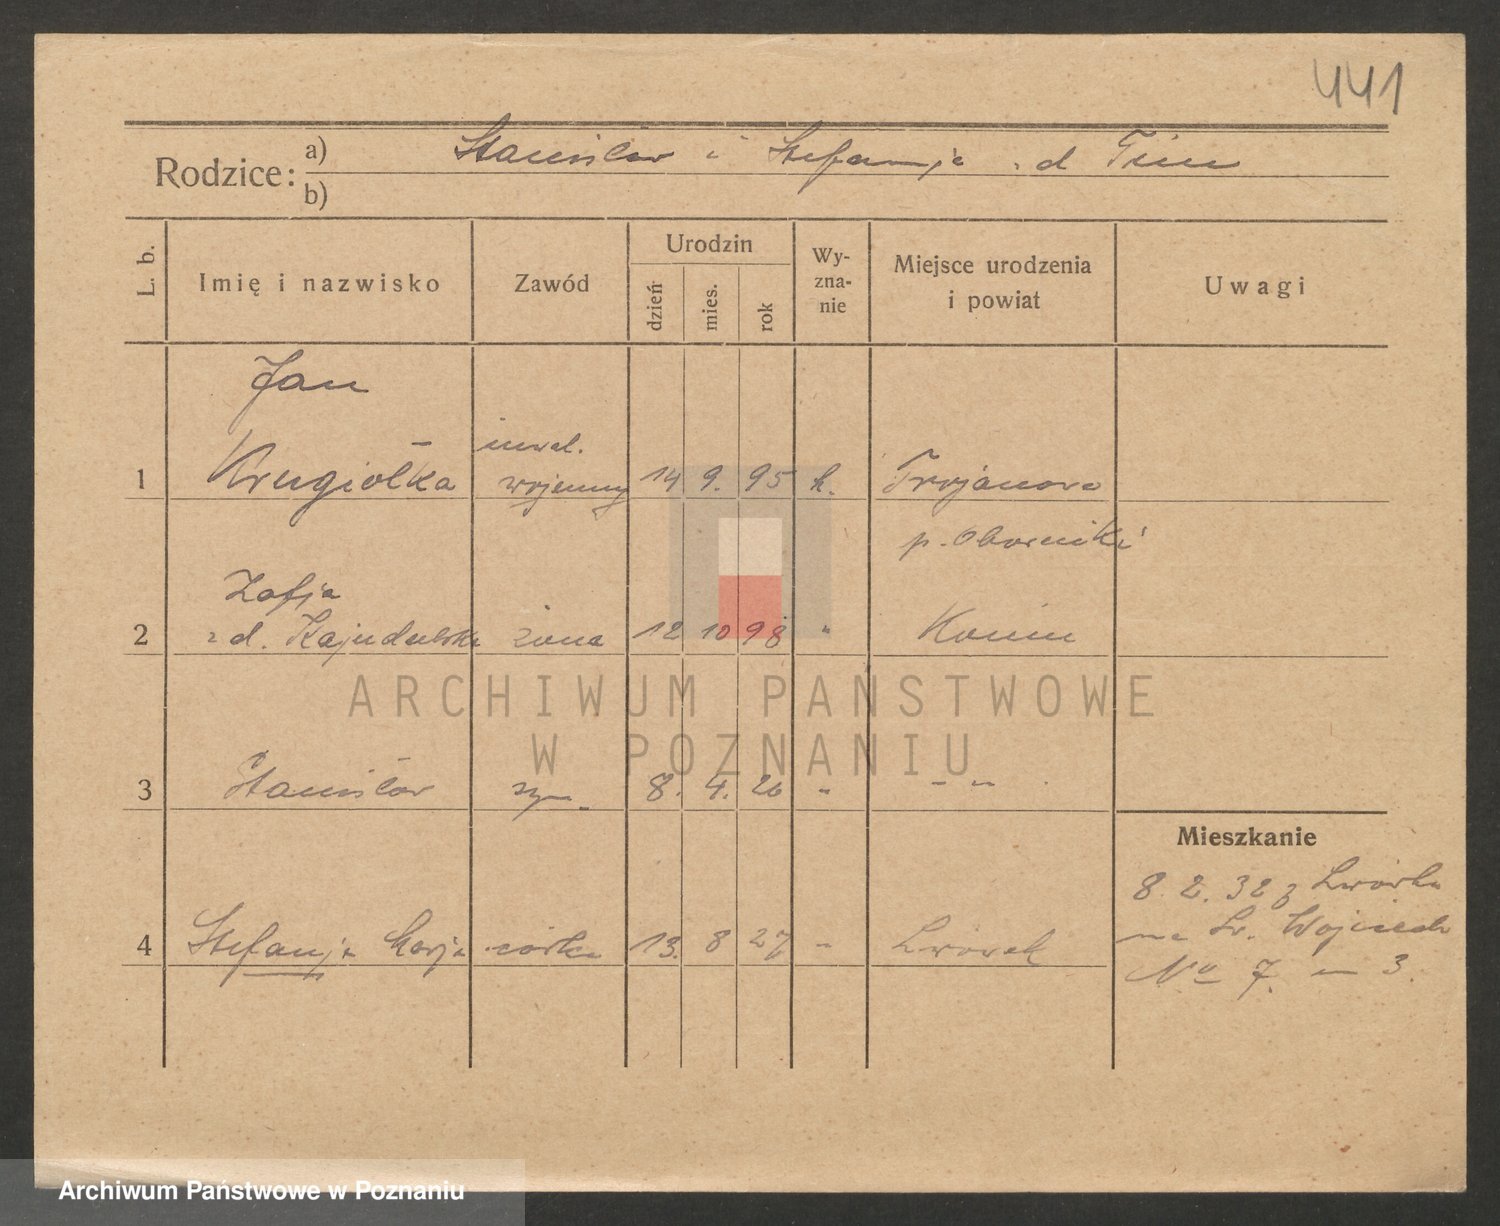 441
Rodzice: a) Stanisław i Stefanja z d Timm
b)
L. b. Imię i nazwisko Zawód Urodzin dzień mies. rok Wy-zna-nie Miejsce urodzenia i powiat Uwagi
Jan
inwal.
1 Krugiołka wojenny 14 9. 95 k. Trojanowo
p. Oborniki
Zofja
2 z d. żona 12 10 98 " Konin
ARCHIWUM PAŃSTWOWE
W POZNANIU
3 Stanisław syn 8. 4. 26 " - " -
Mieszkanie
8. 2. 32 z Lwówka
4 Stefanja Marja córka 13. 8 27 " Lwówek
na Św. Wojciech
No 7. m 3.
Archiwum Państwowe w Poznaniu